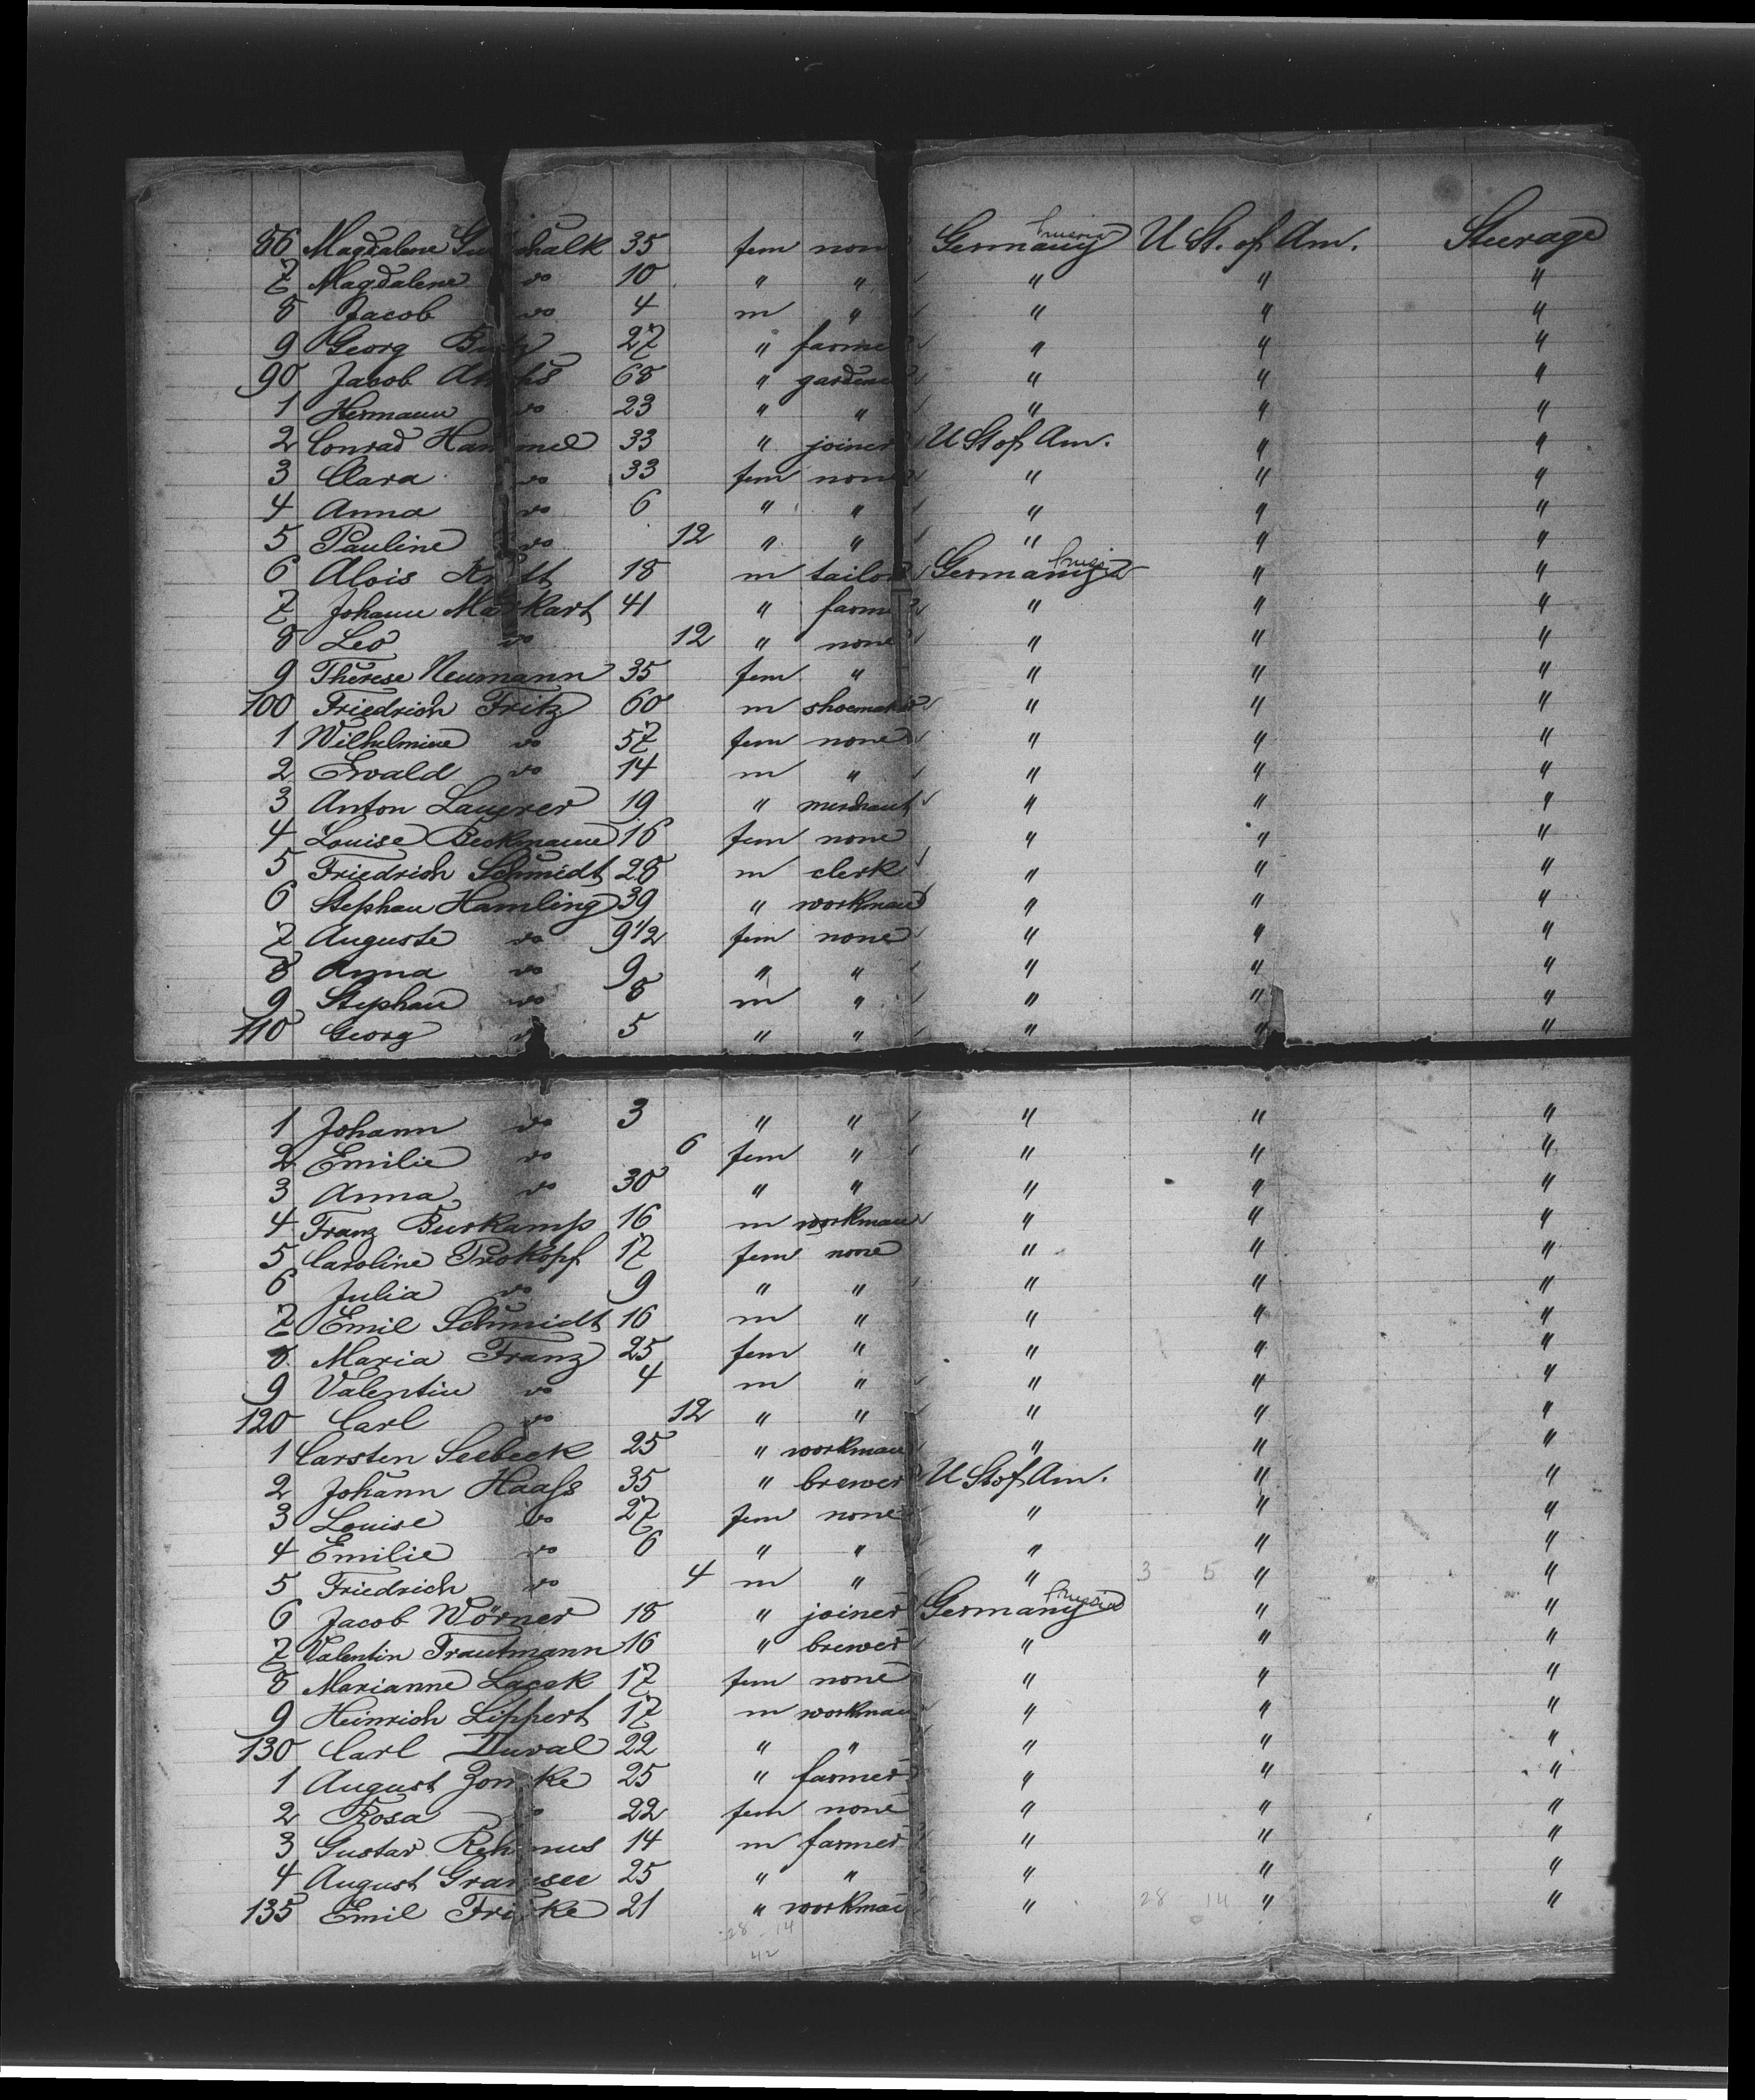 86 Magdalene Gu halk 35 fem non Germany Prussia U St. of Am. Steerage
7 Magdalene do 10 " " " " "
8 Jacob do 4 m " " " "
9 Georg 27 " farme " " "
90 Jacob 68 " gardene " " "
1 Hermann do 23 " " " " "
2 Conrad Ham mel 33 " joiner U St of Am. " "
3 Clara do 33 fem non " " "
4 Anna do 6 " " " " "
5 Pauline do 12 " " " " "
6 Alois 18 m tailor Germany Prussia " "
7 Johann Markart 41 " farme " " "
8 Leo do 12 " none " " "
9 Therese Neumann 35 fem " " " "
100 Friedrich Fritz 60 m shoemaker " " "
1 Wilhelmine do 57 fem none " " "
2 Ewald do 14 m " " " "
3 Anton Lauerer 19 " merchant " " "
4 Louise Beckmann 16 fem none " " "
5 Friedrich Schmidt 28 m clerk " " "
6 Stephan Hamling 39 " workman " " "
7 Auguste do 9 1/2 fem none " " "
8 Anna do 9 " " " " "
9 Stephan do 8 m " " " "
110 Georg do 5 " " " " "
1 Johann do 3 " " " " "
2 Emilie do 6 fem " " " "
3 Anna do 30 " " " " "
4 Franz Burkamp 16 m workman " " "
5 Caroline Prokopf 17 fem none " " "
6 Julia do 9 " " " " "
7 Emil Schmidt 16 m " " " "
8 Maria Franz 25 fem " " " "
9 Valentin do 4 m " " " "
120 Carl do 12 " " " " "
1 Carsten Seebeck 25 " workman " " "
2 Johann Haaſs 35 " brewer U St of Am. " "
3 Louise do 27 fem none " " "
4 Emilie do 6 " " " " "
5 Friedrich do 4 m " " 3 5 " "
6 Jacob Wörner 18 " joiner Germany Prussia " "
7 Valentin Trautmann 16 " brewer " " "
8 Marianne Lacak 17 fem none " " "
9 Heinrich Lippert 17 m workman " " "
130 Carl Duval 22 " " " " "
1 August Zon ke 25 " farmer " " "
2 Rosa 22 fem none " " "
3 Gustav Reh mus 14 m farmer " " "
4 August Gramsee 25 " " " " "
135 Emil Fricke 21 " workman " 28 14 " "
28 14
42